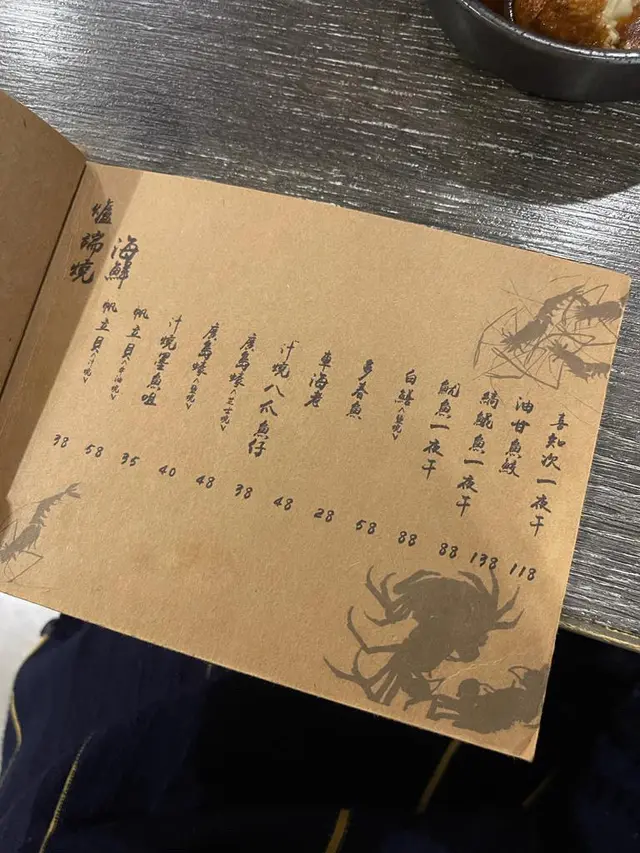 爐端燒
海鮮
帆立貝<汁燒> 38
帆立貝<牛油燒> 58
汁燒墨魚咀 35
廣島蠔<鹽燒> 40
廣島蠔<芝士燒> 48
汁燒八爪魚仔 38
車海老 48
多春魚 28
白鱔<鹽燒> 58
魷魚一夜干 88
魚一夜干 88
油甘魚鮫 138
喜知次一夜干 118